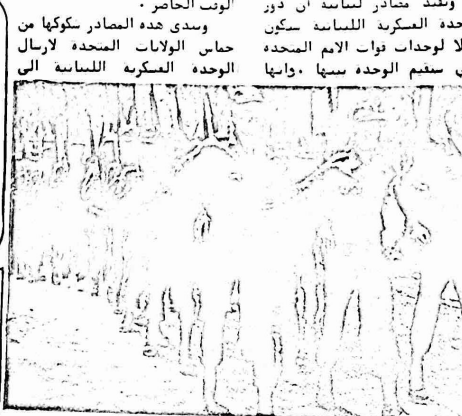 وتفيد مصادر لبنانية ان دور
الوحدة العسكرية اللبنانية سيكون
لوحدات قوات الامم المتحدة
ستقيم الوحدة بينها ، وانها
الوقت الحاضر .
وتبدي هذه المصادر شكوكها من
حماس الولايات المتحدة لارسال
الوحدة العسكرية اللبنانية الى